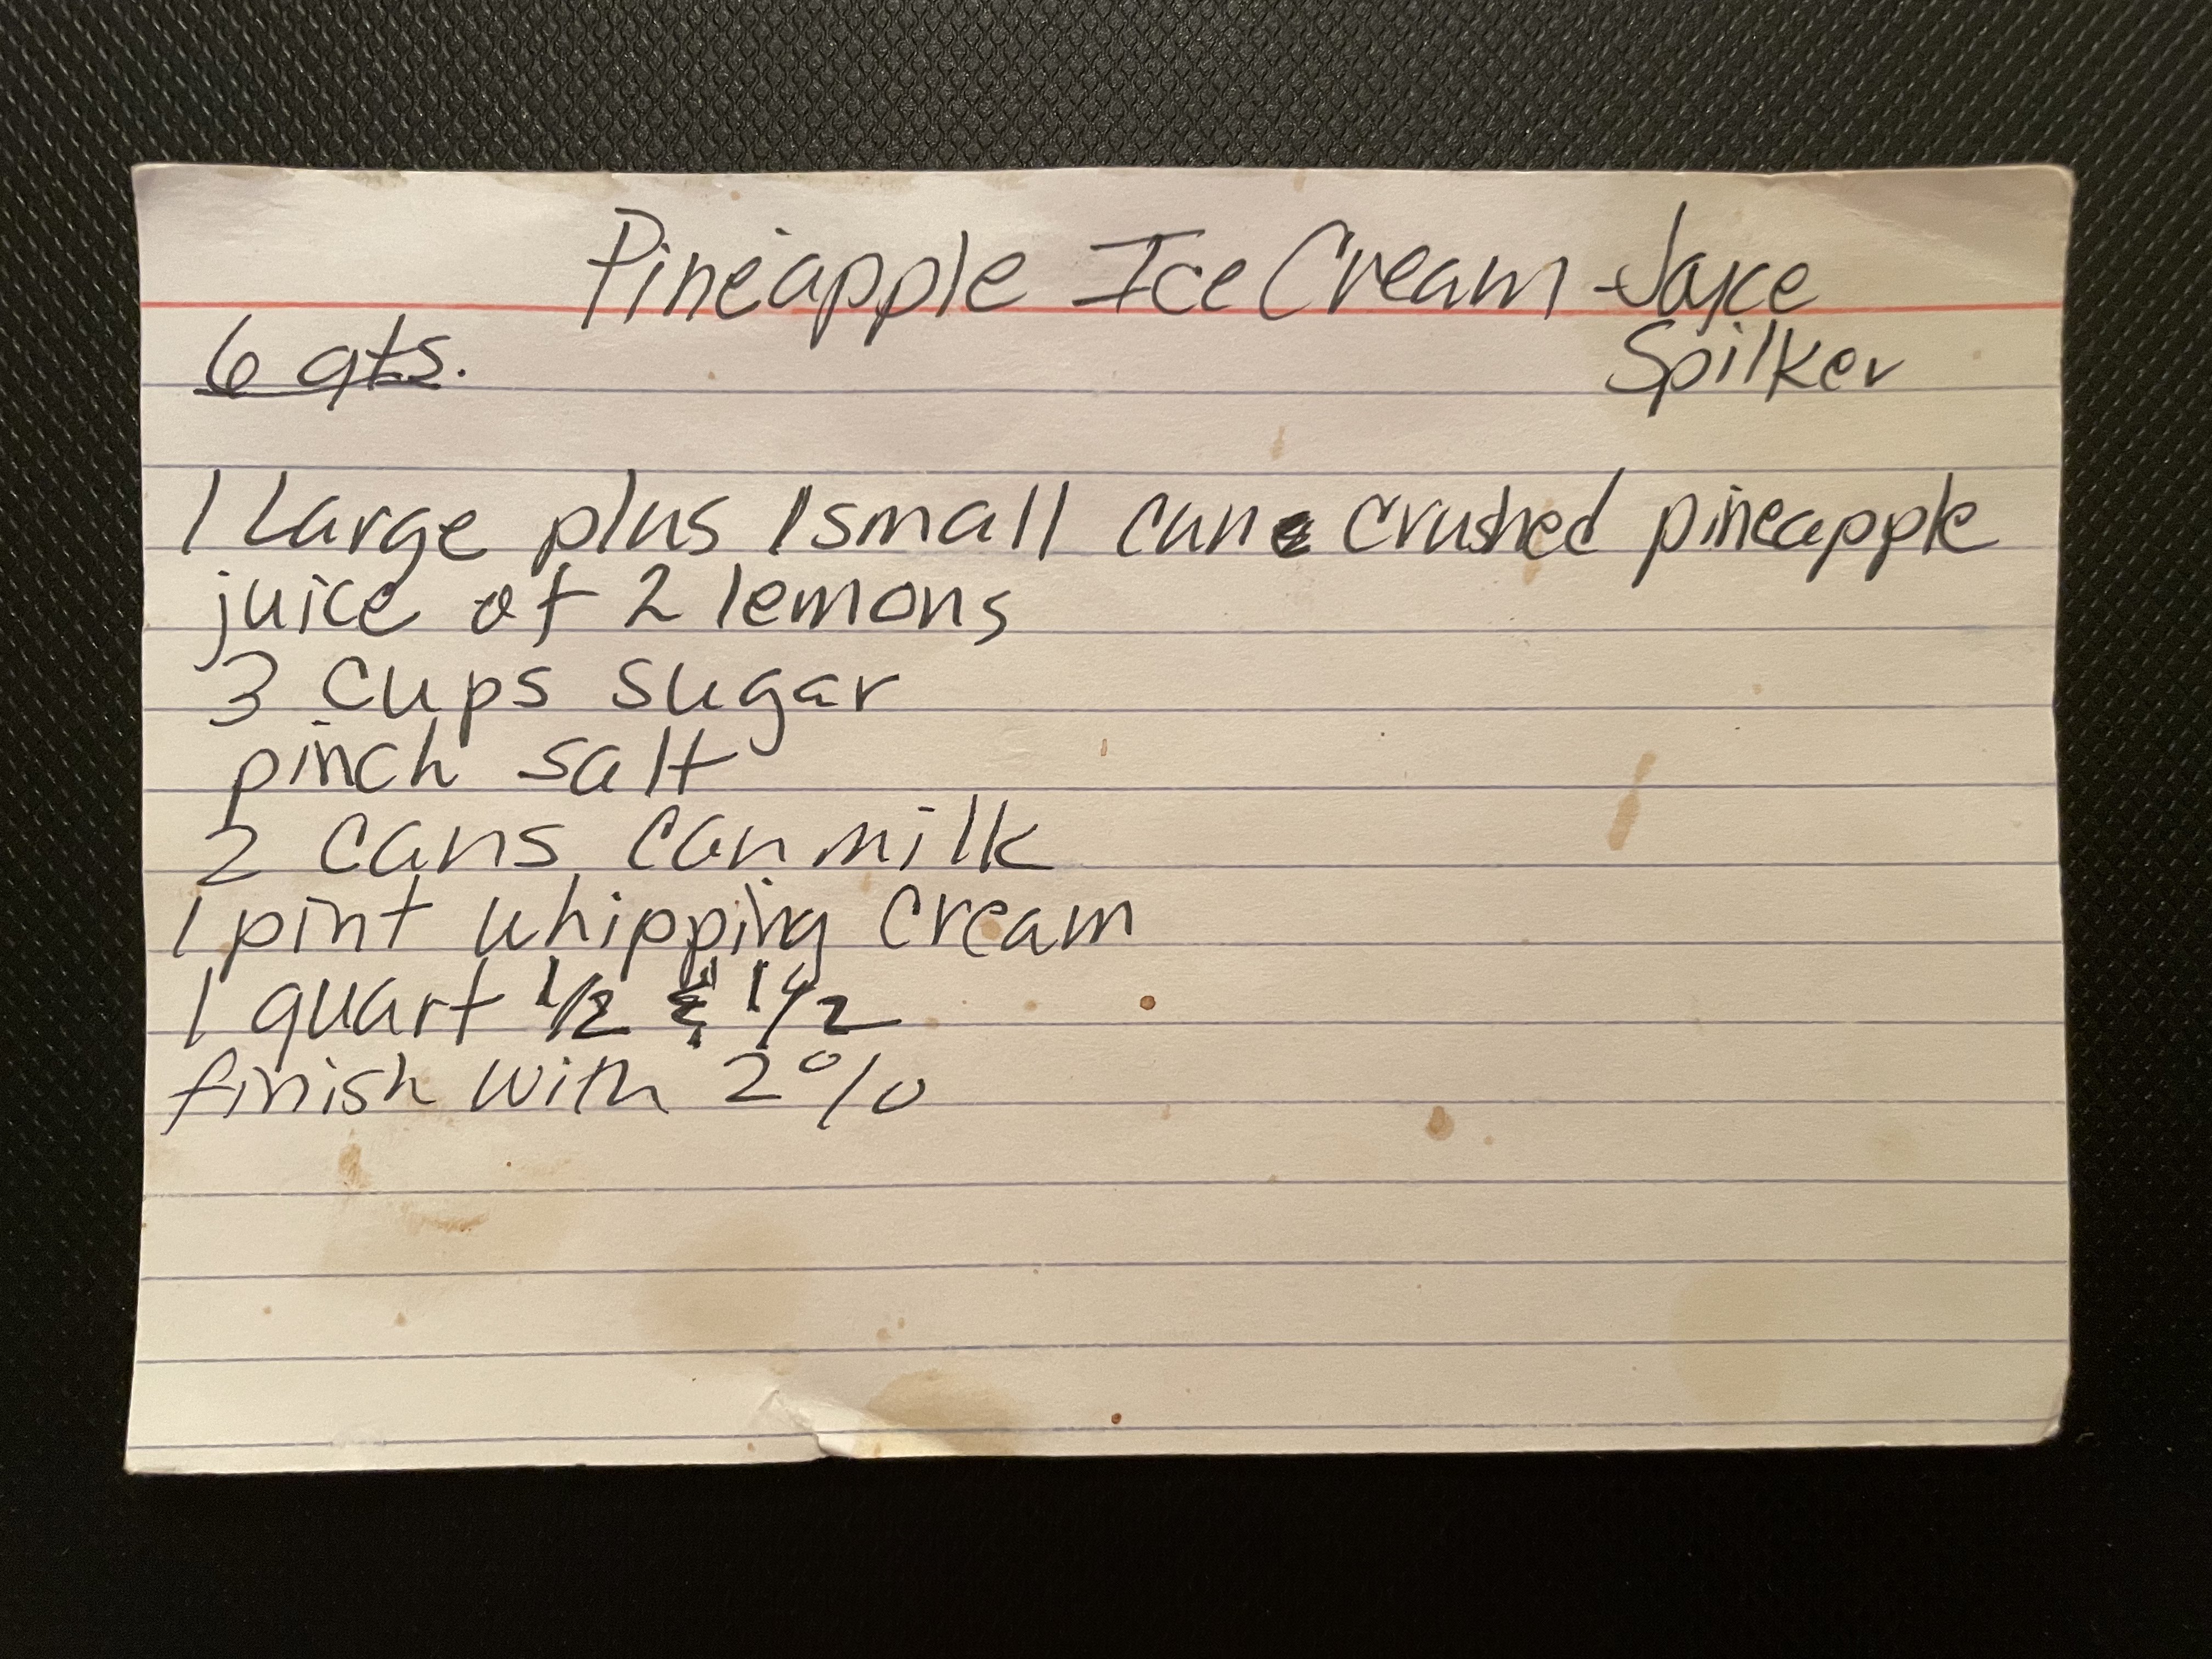 Pineapple Ice Cream - Jake
Spilker
6 qts.
1 Large plus 1 small can crushed pineapple
juice of 2 lemons
3 cups sugar
pinch salt
2 cans can milk
1 pint whipping cream
1 quart 1/2 & 1/2
finish with 2%